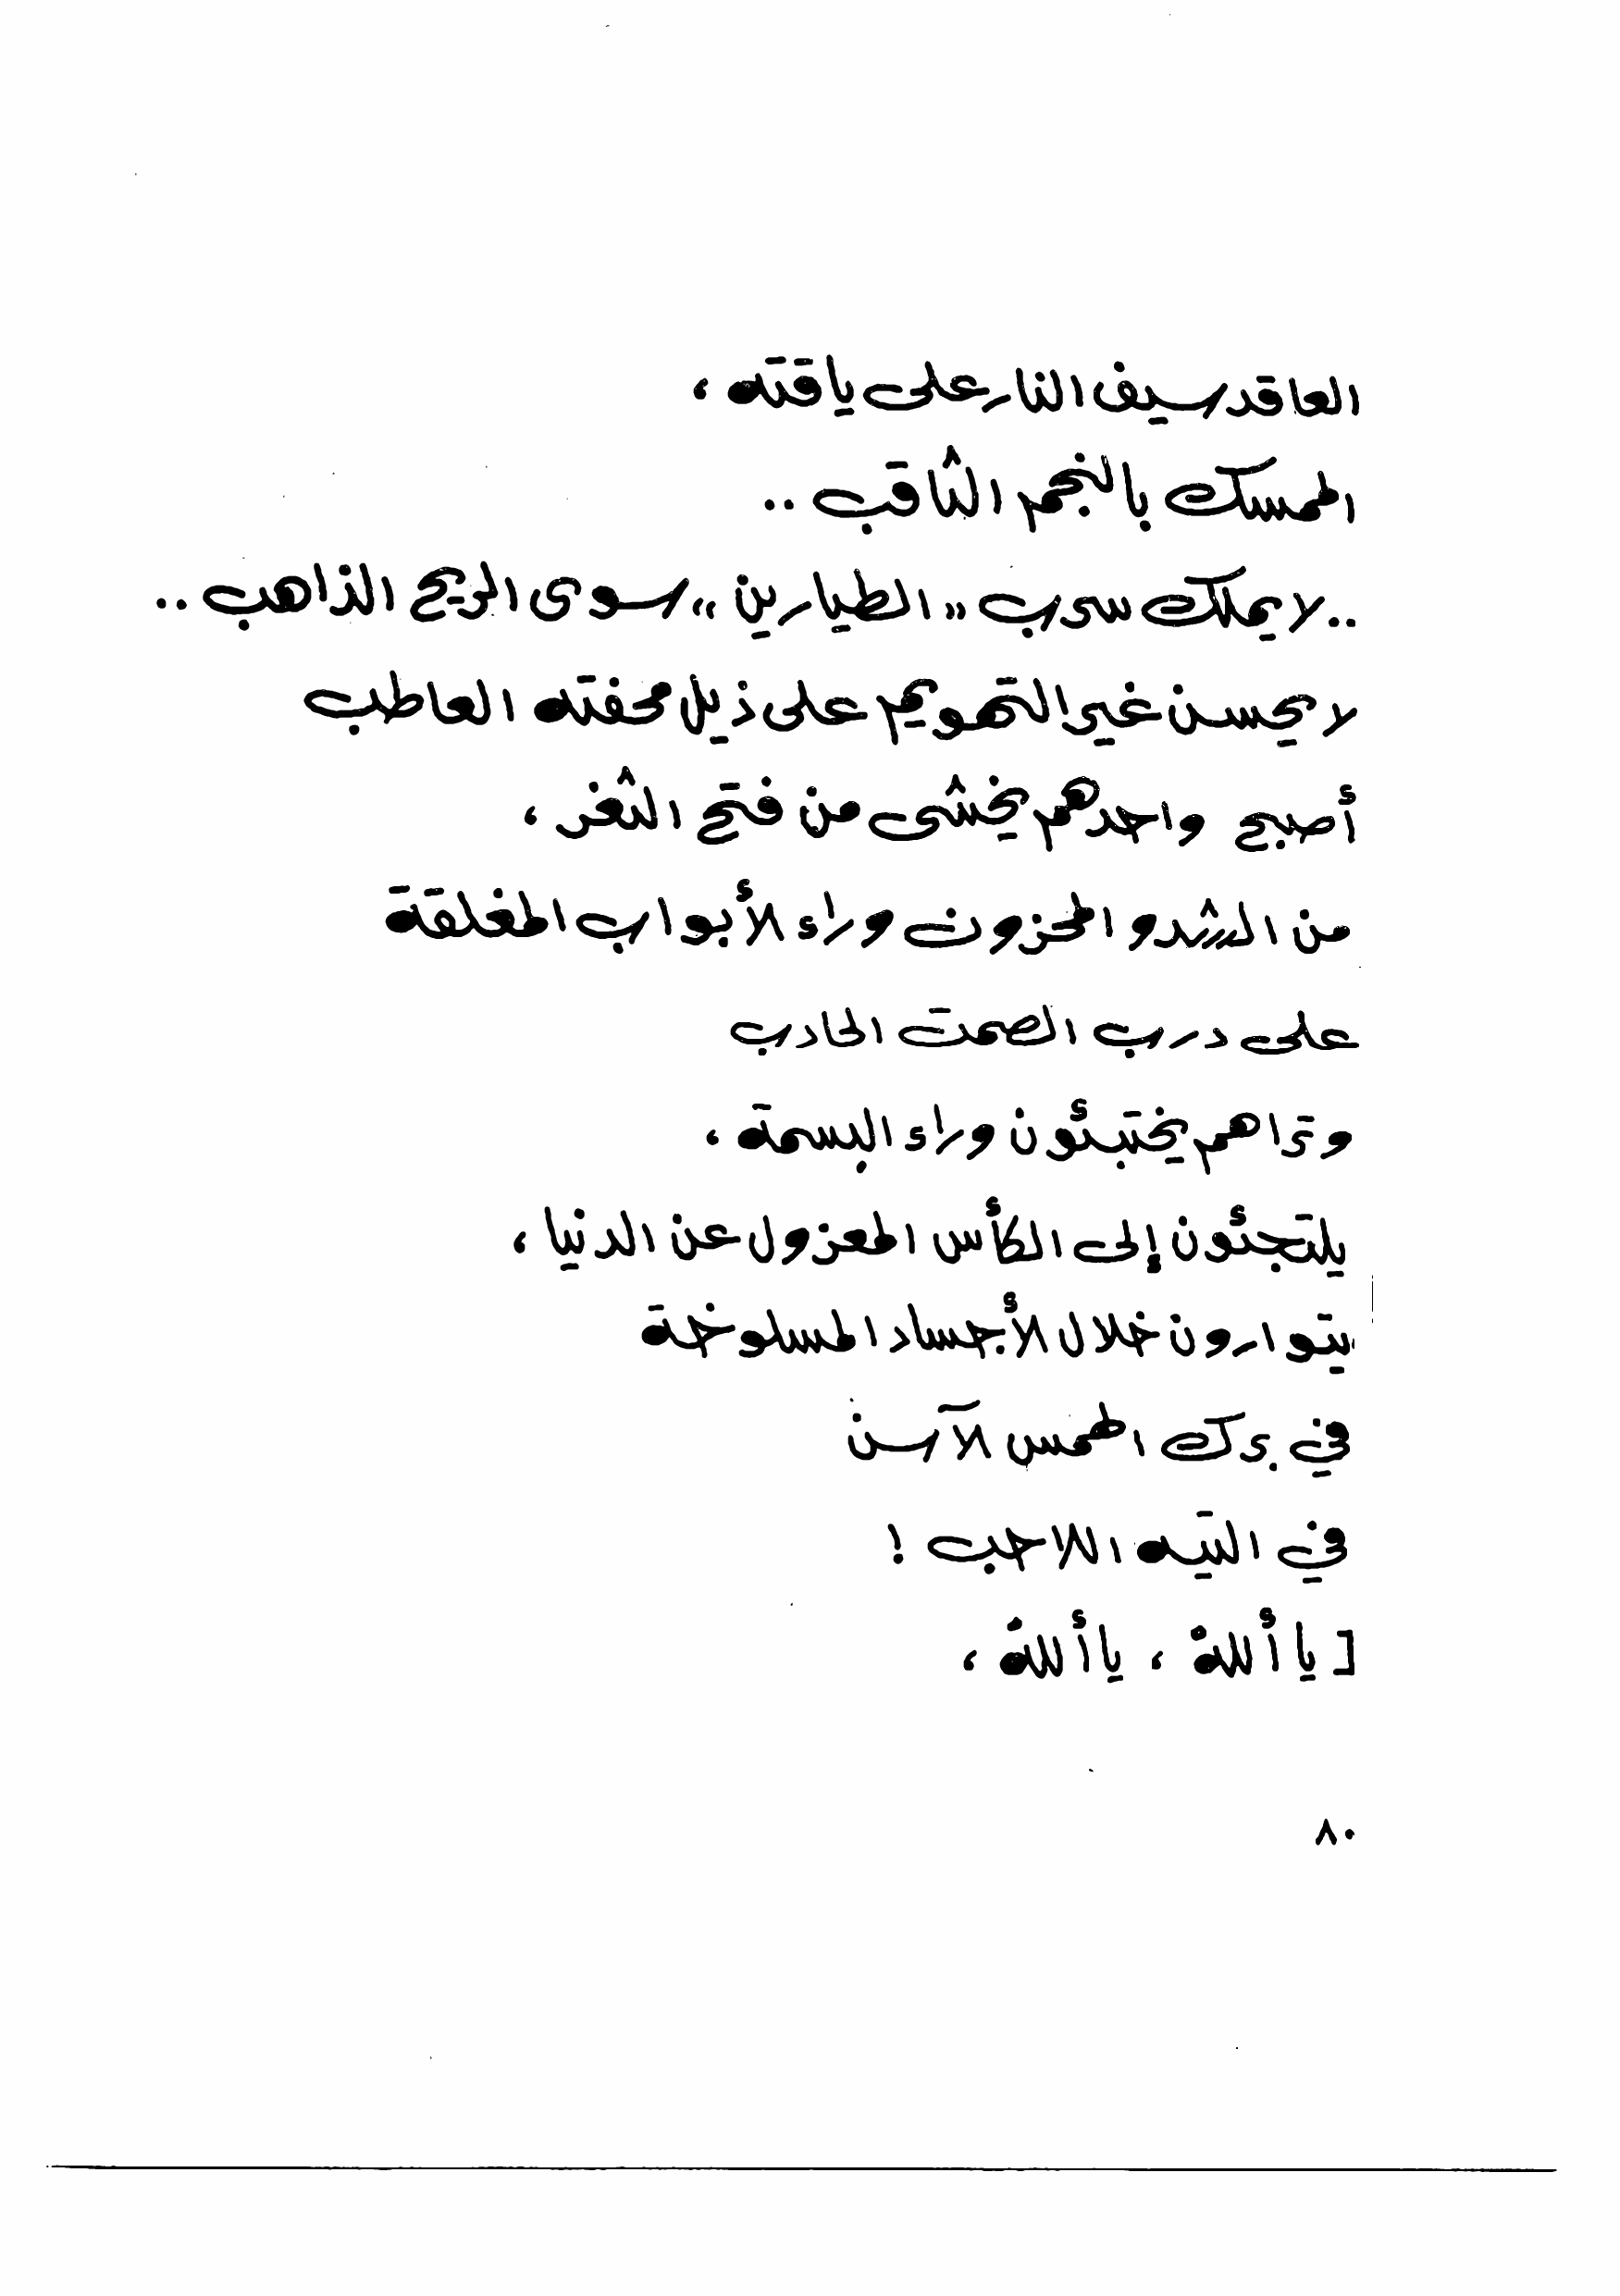 العاقد سيف النار على ياقته ،
الممسك بالنجم الثاقب ..
.. لا يملك سرب « الطيارين » سوى الريح الذاهب ..
لا يحسن غير التهويم على ذيل محفته العاطب
أصبح واحدهم يخشى من فتح الثغر ،
من الشدو المحزون وراء الأبواب المغلقة
على درب الصمت الحادب
وتراهم يختبئون وراء البسمة ،
يلتجئون إلى الكأس المعزول عن الدنيا ،
يتوارون خلال الأجساد المسلوخة
في برك الهمس الآسن
في التيه اللاحب !
[ يا أللهُ ، يا أللهُ ،
٨٠